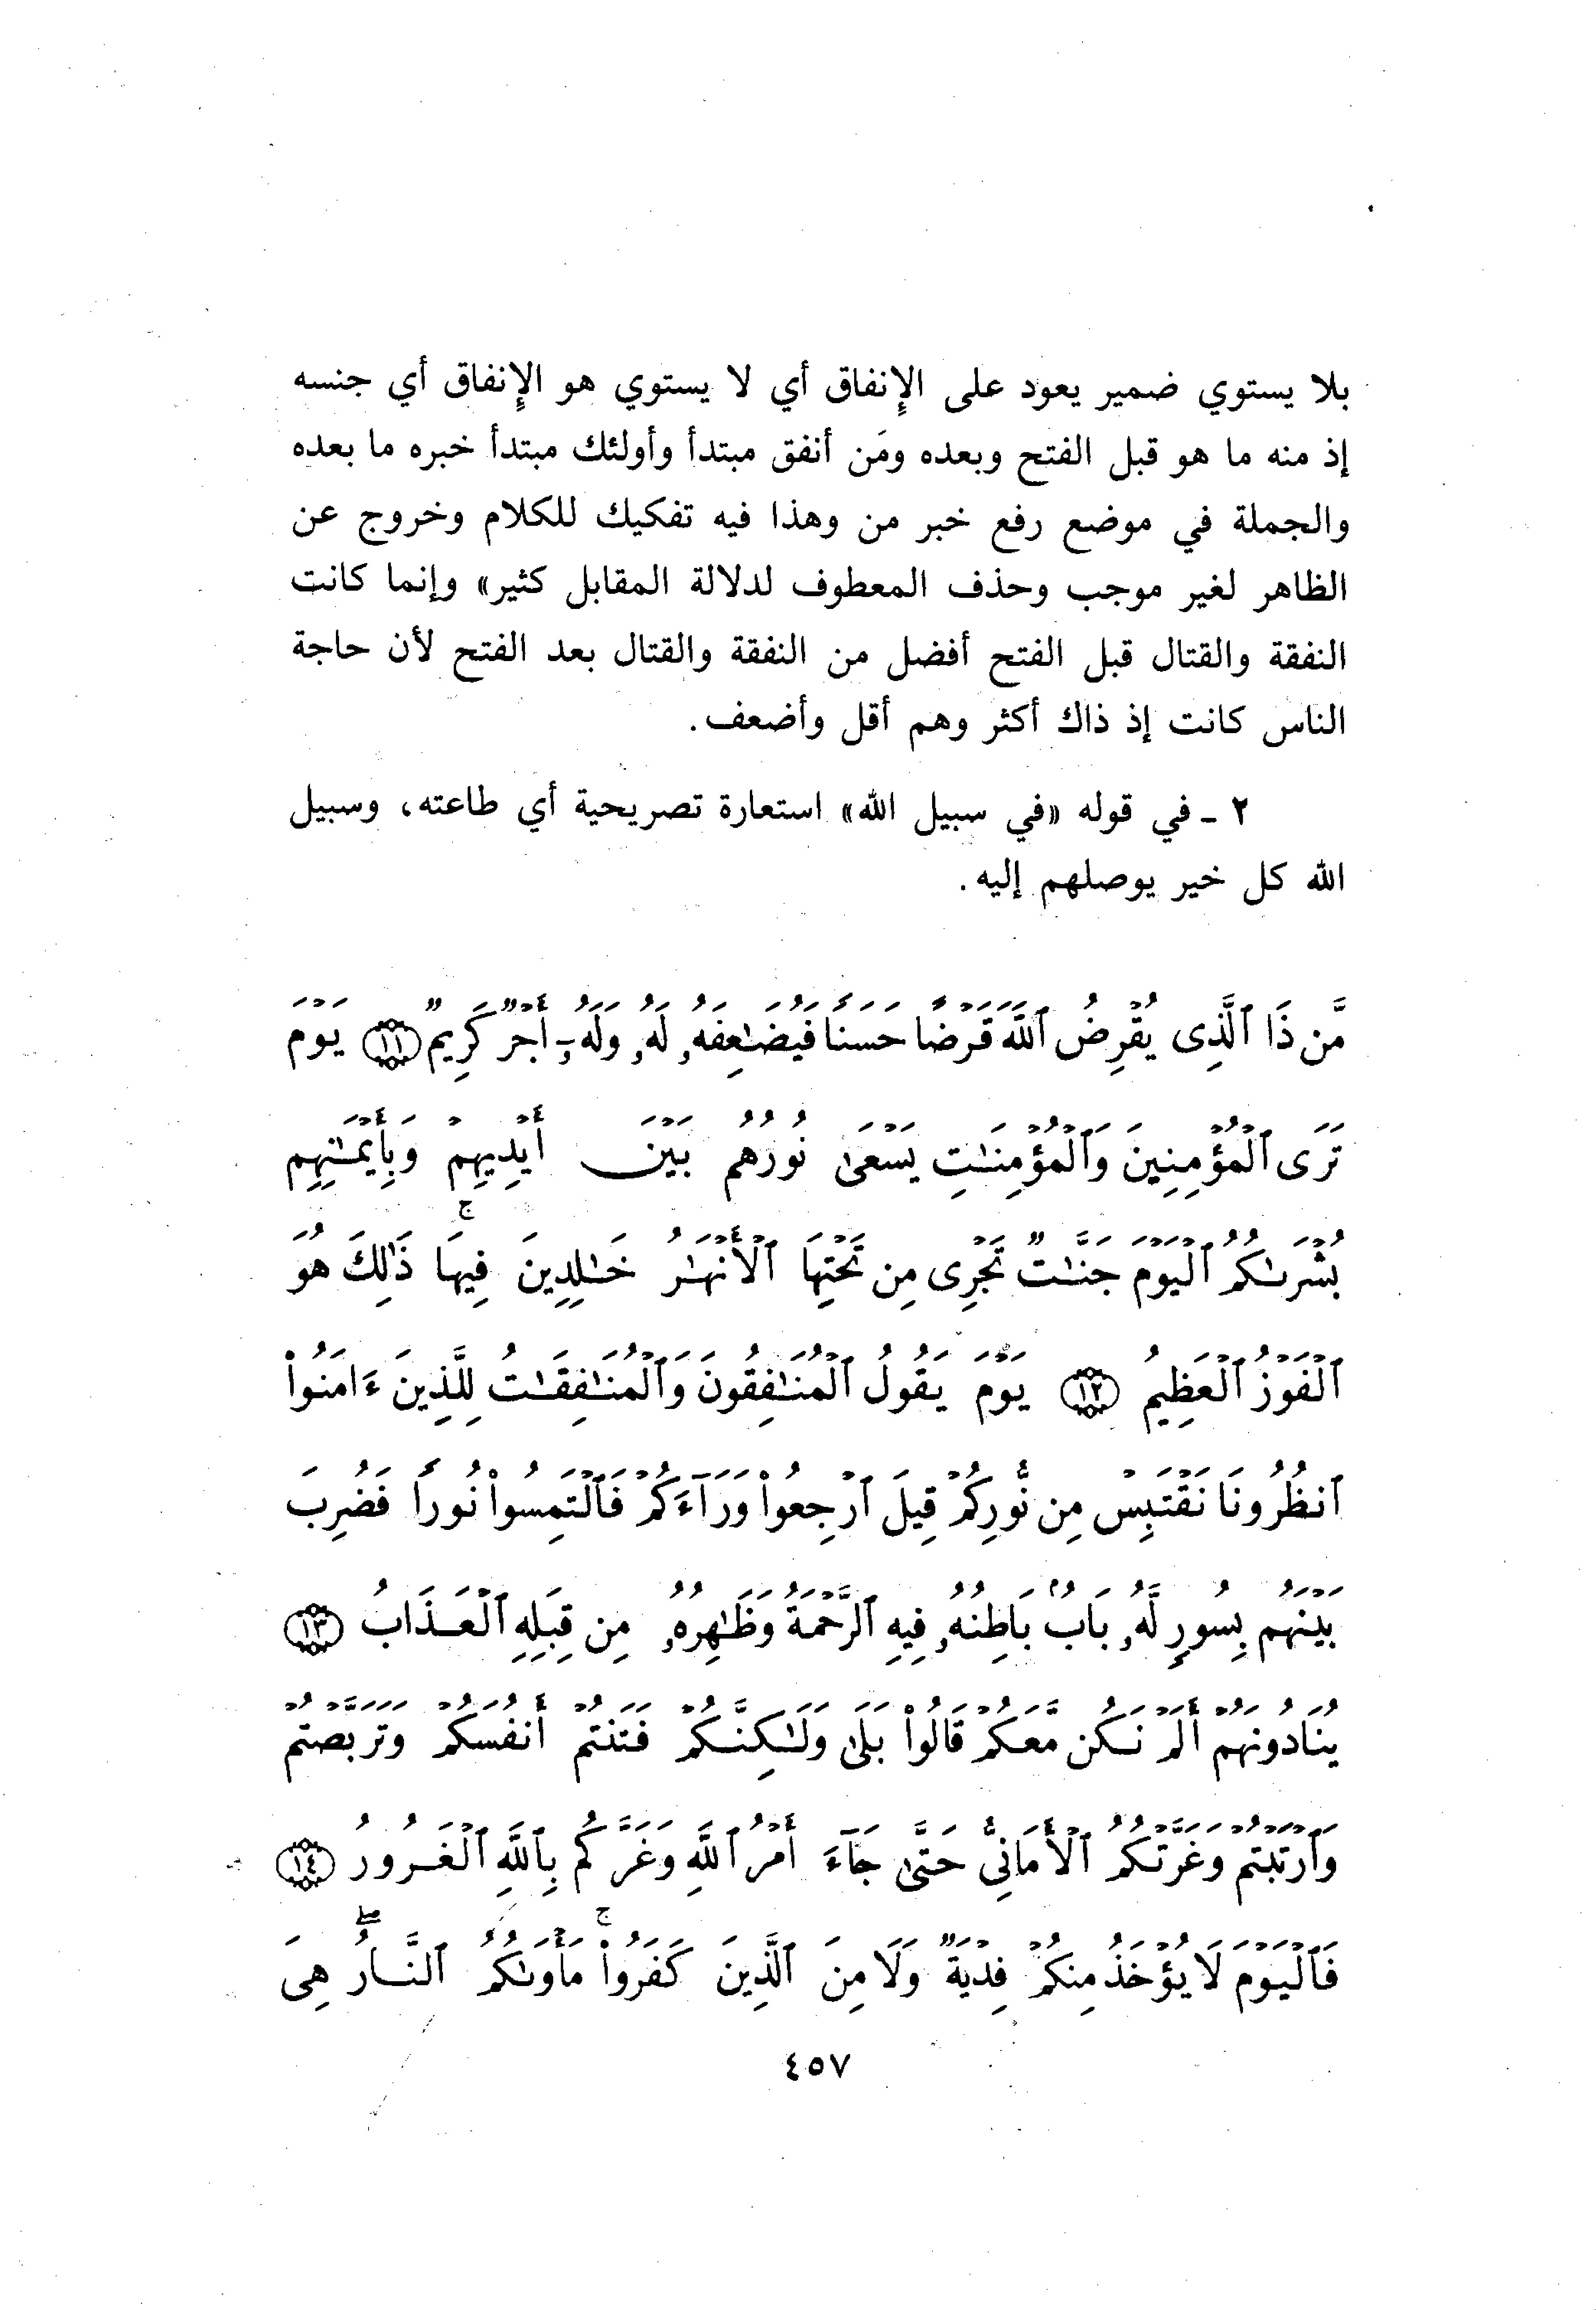 بلا يستوي ضمير يعود على الإنفاق أي لا يستوي هو الإنفاق أي جنسه
إذ منه ما هو قبل الفتح وبعده ومَن أنفق مبتدأ وأولئك مبتدأ خبره ما بعده
والجملة في موضع رفع خبر من وهذا فيه تفكيك للكلام وخروج عن
الظاهر لغير موجب وحذف المعطوف لدلالة المقابل كثير» وإنما كانت
النفقة والقتال قبل الفتح أفضل من النفقة والقتال بعد الفتح لأن حاجة
الناس كانت إذ ذاك أكثر وهم أقل وأضعف.
٢ - في قوله «في سبيل الله» استعارة تصريحية أي طاعته، وسبيل
الله كل خير يوصلهم إليه.
مَّن ذَا ٱلَّذِى يُقْرِضُ ٱللَّهَ قَرْضًا حَسَنًا فَيُضَـٰعِفَهُۥ لَهُۥ وَلَهُۥٓ أَجْرٌ كَرِيمٌ ﴿١١﴾ يَوْمَ
تَرَى ٱلْمُؤْمِنِينَ وَٱلْمُؤْمِنَـٰتِ يَسْعَىٰ نُورُهُم بَيْنَ أَيْدِيهِمْ وَبِأَيْمَـٰنِهِم
بُشْرَىٰكُمُ ٱلْيَوْمَ جَنَّـٰتٌ تَجْرِى مِن تَحْتِهَا ٱلْأَنْهَـٰرُ خَـٰلِدِينَ فِيهَا ۚ ذَٰلِكَ هُوَ
ٱلْفَوْزُ ٱلْعَظِيمُ ﴿١٢﴾ يَوْمَ يَقُولُ ٱلْمُنَـٰفِقُونَ وَٱلْمُنَـٰفِقَـٰتُ لِلَّذِينَ ءَامَنُوا۟
ٱنظُرُونَا نَقْتَبِسْ مِن نُّورِكُمْ قِيلَ ٱرْجِعُوا۟ وَرَآءَكُمْ فَٱلْتَمِسُوا۟ نُورًا فَضُرِبَ
بَيْنَهُم بِسُورٍ لَّهُۥ بَابٌۢ بَاطِنُهُۥ فِيهِ ٱلرَّحْمَةُ وَظَـٰهِرُهُۥ مِن قِبَلِهِ ٱلْعَذَابُ ﴿١٣﴾
يُنَادُونَهُمْ أَلَمْ نَكُن مَّعَكُمْ قَالُوا۟ بَلَىٰ وَلَـٰكِنَّكُمْ فَتَنتُمْ أَنفُسَكُمْ وَتَرَبَّصْتُمْ
وَٱرْتَبْتُمْ وَغَرَّتْكُمُ ٱلْأَمَانِىُّ حَتَّىٰ جَآءَ أَمْرُ ٱللَّهِ وَغَرَّكُم بِٱللَّهِ ٱلْغَرُورُ ﴿١٤﴾
فَٱلْيَوْمَ لَا يُؤْخَذُ مِنكُمْ فِدْيَةٌ وَلَا مِنَ ٱلَّذِينَ كَفَرُوا۟ ۚ مَأْوَىٰكُمُ ٱلنَّارُ ۖ هِىَ
٤٥٧